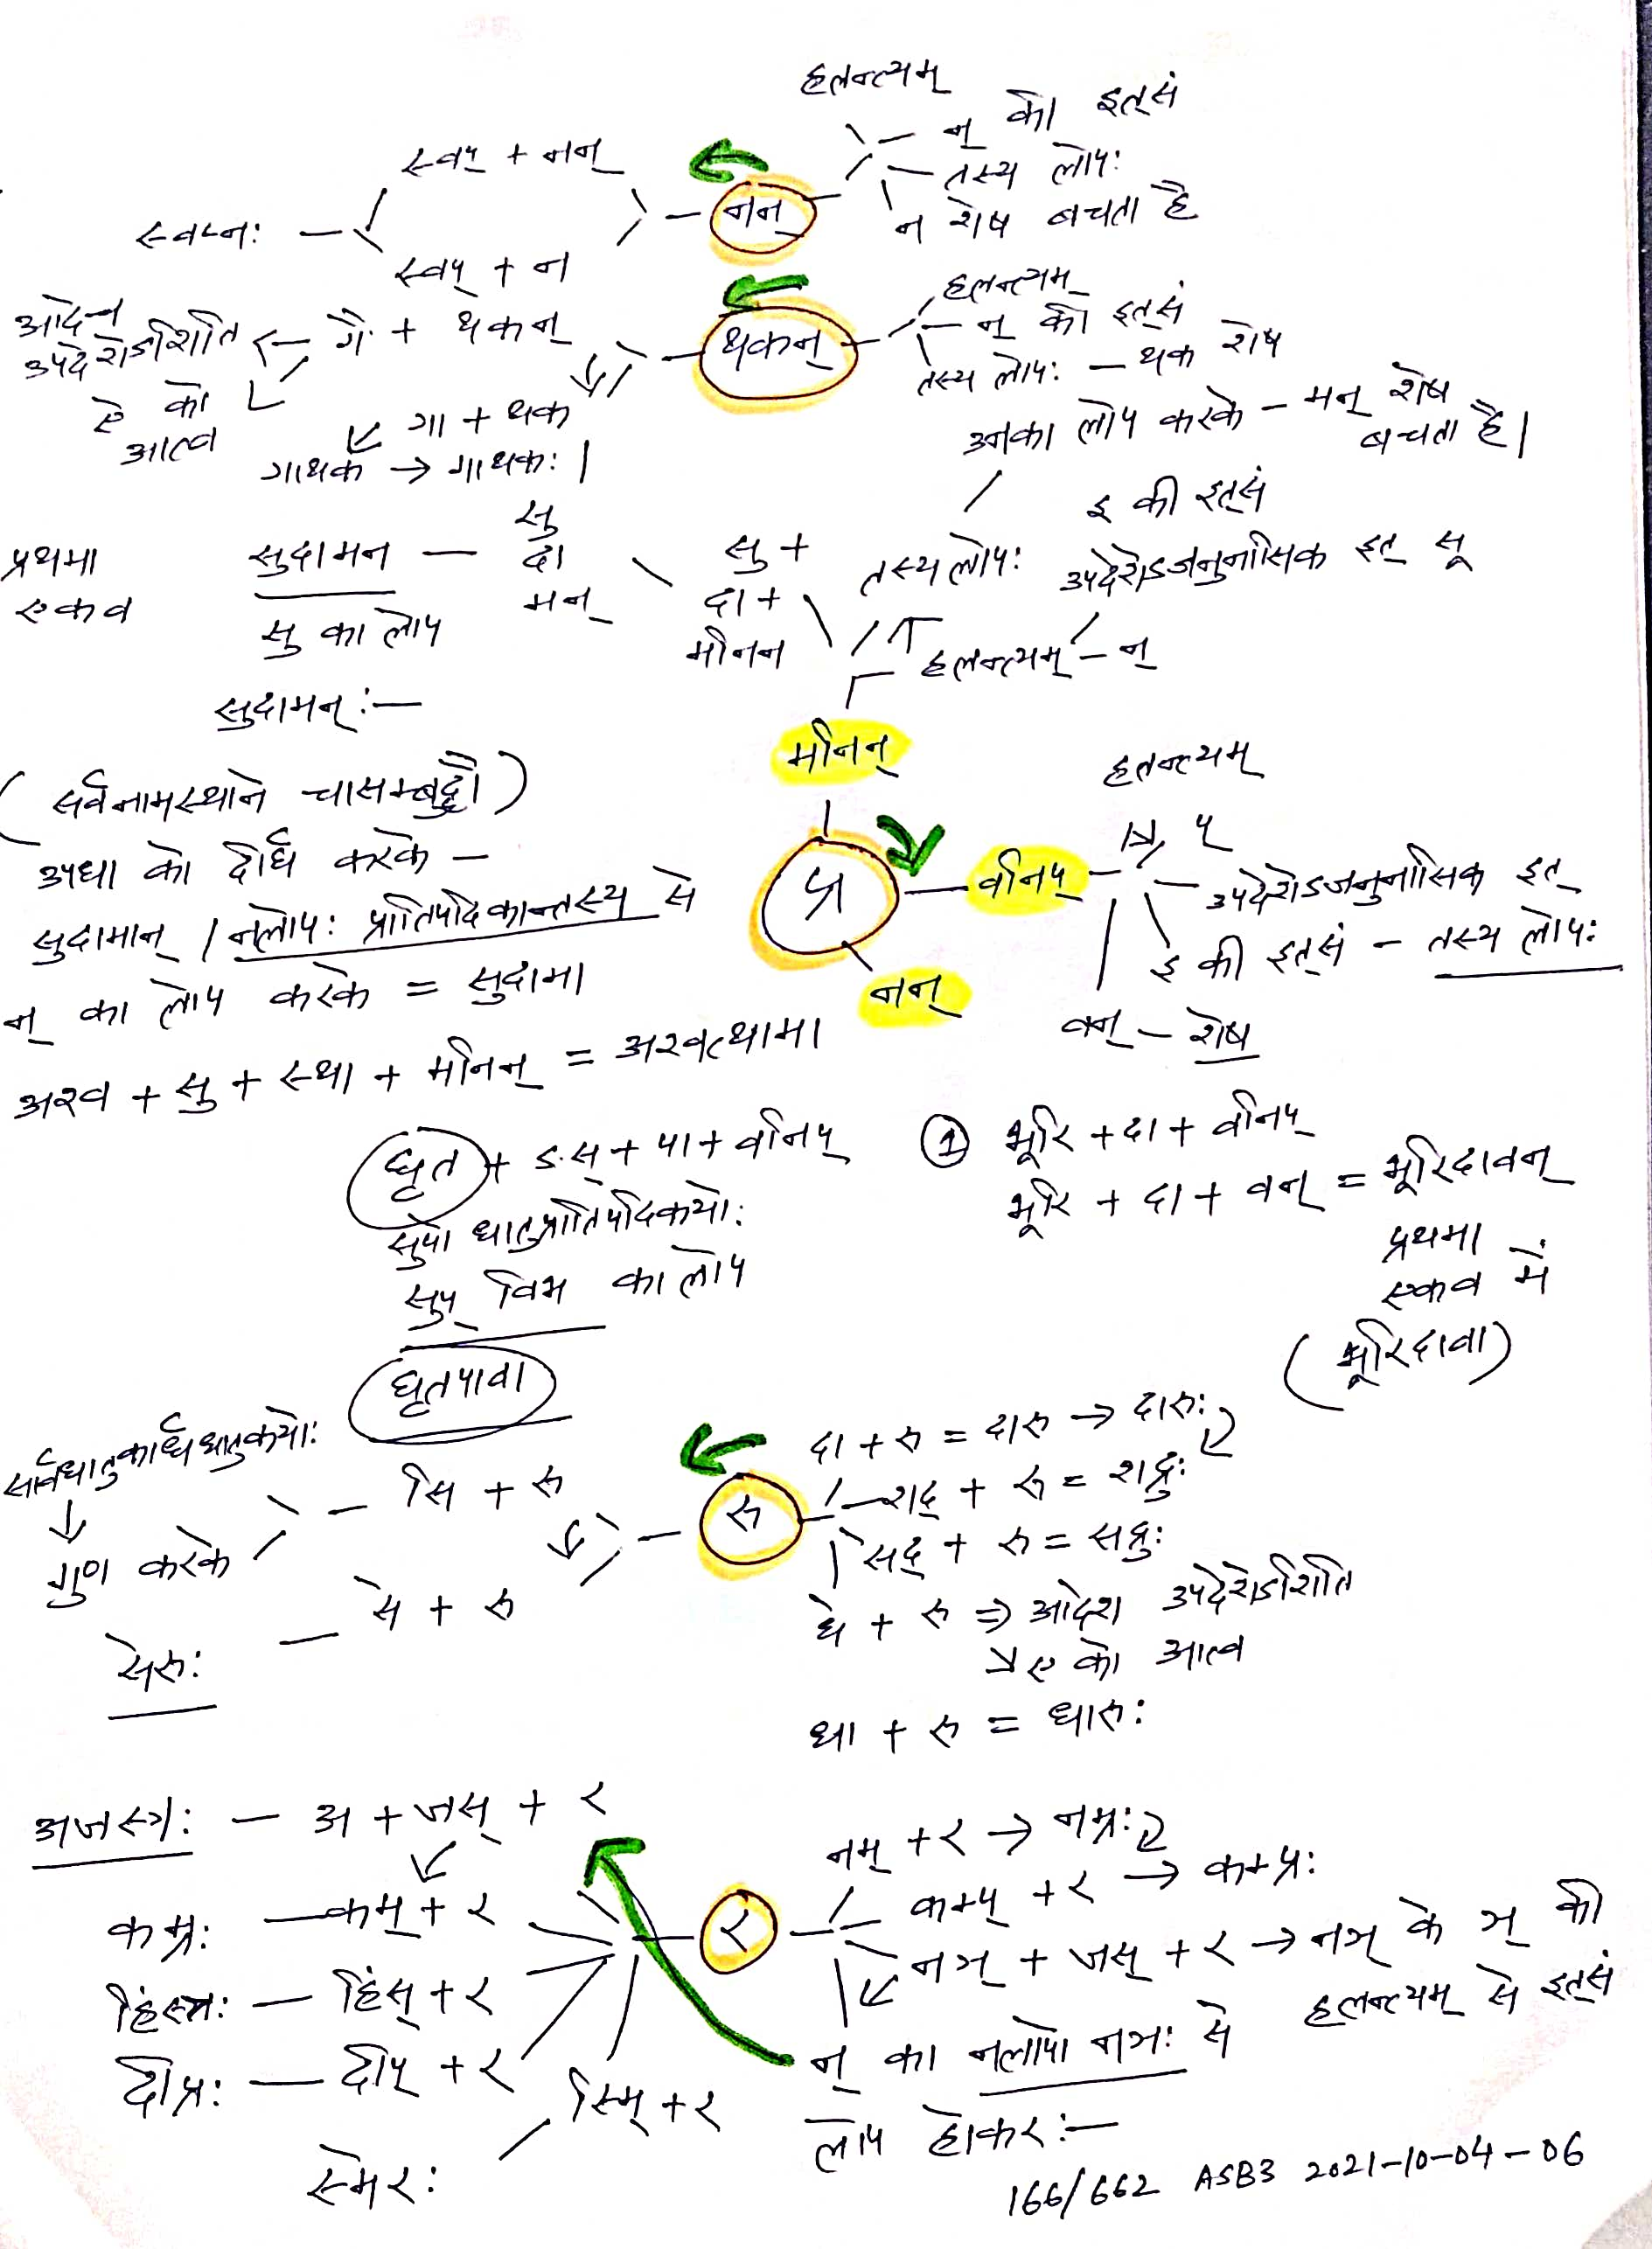 हलन्त्यम्
न् की इत्सं
तस्य लोपः
न शेष बचता है
नन्
स्वप् + नन्
स्वप्नः
स्वप् + न
हलन्त्यम्
न् की इत्सं
तस्य लोपः — थक शेष
थकन्
गै + थकन्
उपदेशेऽशिति
ऐ को
आत्व
गा + थक
गाथक → गाथकः।
उनका लोप करके — मन् शेष
बचता है।
इ की इत्सं
उपदेशेऽजनुनासिक इत् सू
तस्य लोपः
हलन्त्यम् — न्
सु +
दा +
मनिन
सु
दा
मन्
प्रथमा
एकव
सुदामन —
सु का लोप
सुदामन् :—
मनिन्
(सर्वनामस्थाने चासम्बुद्धौ)
उपधा को दीर्घ करके —
सुदामान् / नलोपः प्रातिपदिकान्तस्य से
न् का लोप करके = सुदामा
अश्व + सु + स्था + मनिन् = अश्वत्थामा
हलन्त्यम्
प्
वनिप्
उपदेशेऽजनुनासिक इत्
इ की इत्सं — तस्य लोपः
वन् — शेष
नन्
घृत + ङस् + पा + वनिप्
सुपो धातुप्रातिपदिकयोः
सुप् विभ का लोप
घृतपावा
① भूरि + दा + वनिप्
भूरि + दा + वन् = भूरिदावन्
प्रथमा
एकव में
(भूरिदावा)
सार्वधातुकार्धधातुकयोः
गुण करके
सि + रु
से + रु
सेरुः
रु
दा + रु = दारु → दारुः
शद् + रु = शद्रुः
सद् + रु = सद्रुः
धे + रु ⇒ आदेश उपदेशेऽशिति
ए को आत्व
धा + रु = धारुः
अजस्रः — अ + जस् + र
कम्रः — कम् + र
हिंस्रः — हिंस् + र
दीप्रः — दीप् + र
स्मेरः
स्मि + र
र
नम् + र → नम्रः
कम्प् + र → कम्प्रः
नञ् + जस् + र → नञ् के ञ् की
हलन्त्यम् से इत्सं
न् का नलोपो नञः से
लोप होकर :—
166/662 ASB3 2021-10-04-06